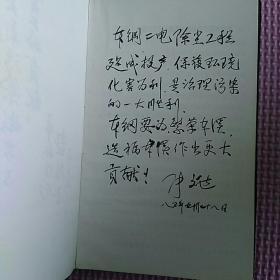 本钢二电除尘工程
建成投产，保护环境
化害为利，是治理污染
的一大胜利。
本钢要为繁荣本溪，
造福本溪作出更大
贡献！
八五年 月廿八日